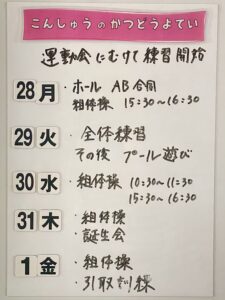 こんしゅうのかつどうよてい
運動会にむけて練習開始
28 月 ・ホール AB合同
組体操 15:30~16:30
29 火 ・全体練習
その後 プール遊び
30 水 ・組体操 10:30~11:30
15:30~16:30
31 木 ・組体操
・誕生会
1 金 ・組体操
・引取り訓練